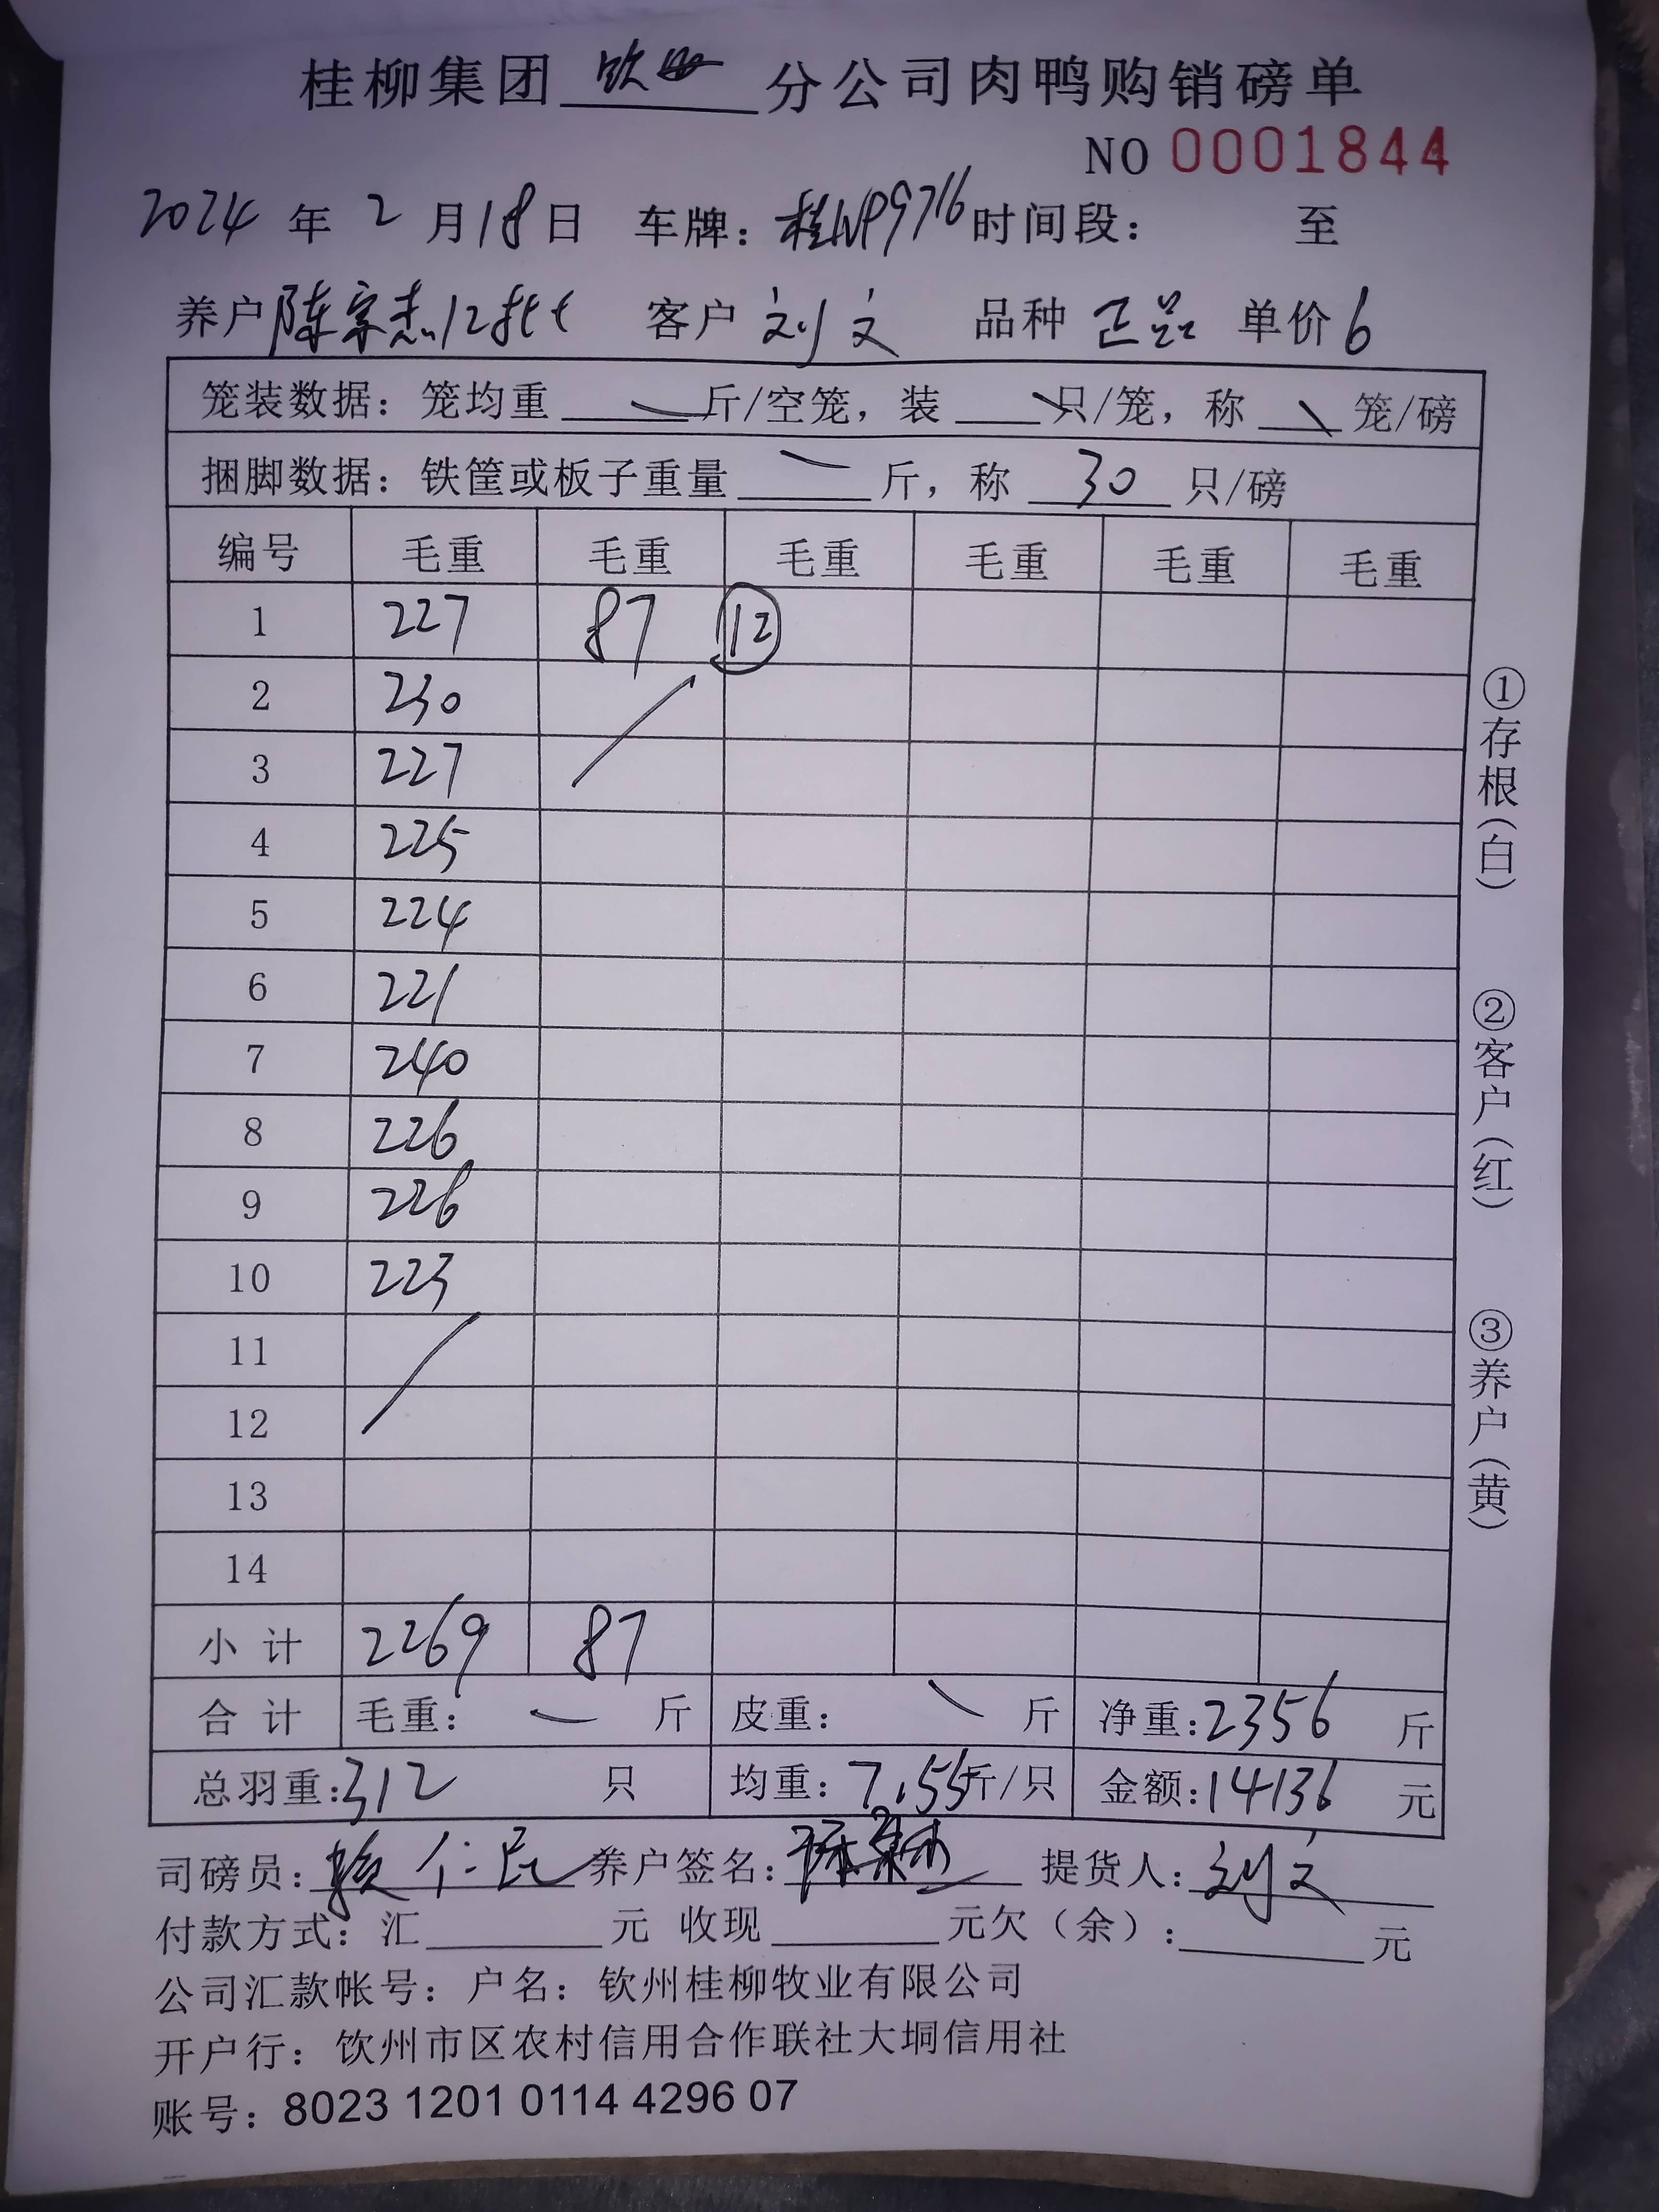 桂柳集团 钦州 分公司肉鸭购销磅单
NO 0001844
2024 年 2 月 18 日 车牌：桂NP9716 时间段： 至
养户 陈宗杰12批 客户 刘文 品种 正品 单价 6
笼装数据：笼均重 斤/空笼，装 只/笼，称 笼/磅
捆脚数据：铁筐或板子重量 斤，称 30 只/磅
编号 毛重 毛重 毛重 毛重 毛重 毛重
1 227 87 12
2 230
3 227
4 225
5 224
6 221
7 240
8 226
9 226
10 223
11
12
13
14
小计 2269 87
合计 毛重： 斤 皮重： 斤 净重：2356 斤
总羽重：312 只 均重：7.55斤/只 金额：14136 元
司磅员： 仁 养户签名： 提货人：刘文
付款方式：汇 元 收现 元欠（余）： 元
公司汇款帐号：户名：钦州桂柳牧业有限公司
开户行：钦州市区农村信用合作联社大垌信用社
账号：8023 1201 0114 4296 07
①存根（白）
②客户（红）
③养户（黄）